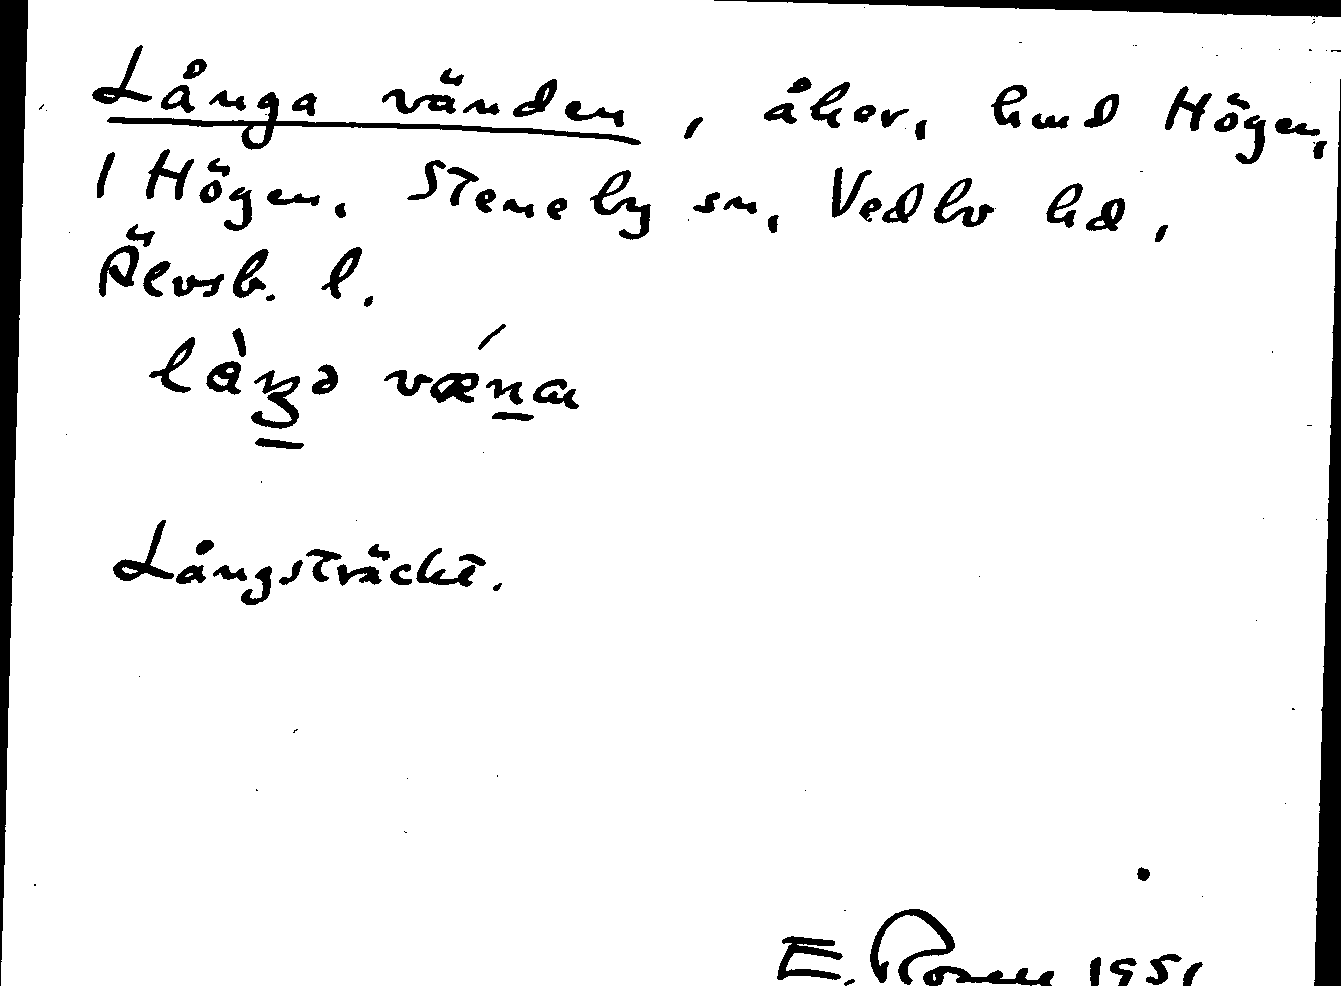 Långa vänden, åker, hmd Högen,
1 Högen, Steneby sn, Vedbo hd,
Älvsb. l.
Långsträckt.
E. Rosen 1951